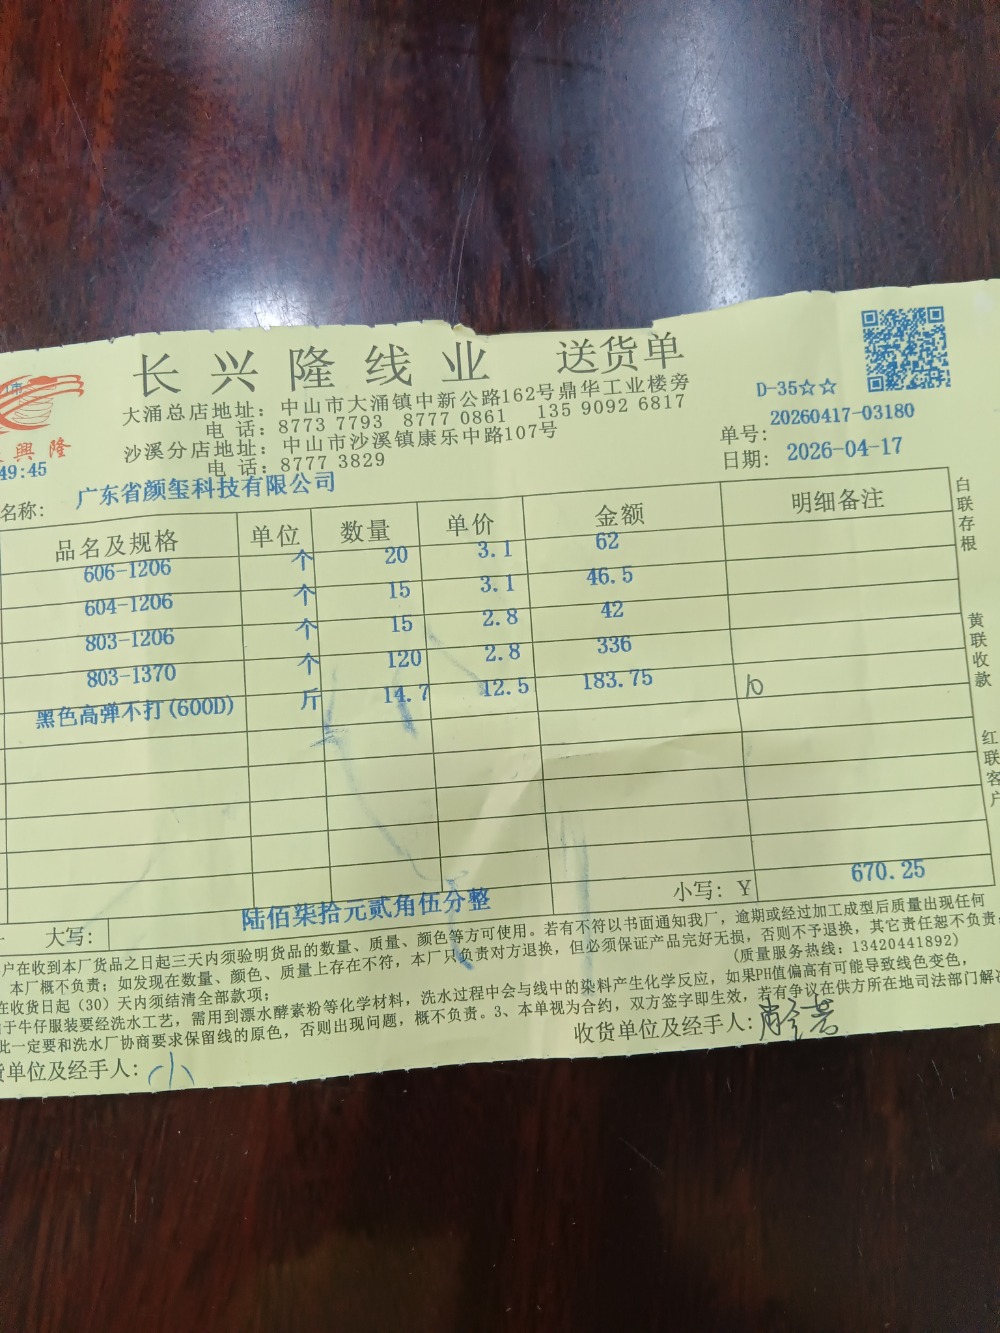 长兴隆线业 送货单
大涌总店地址：中山市大涌镇中新公路162号鼎华工业楼旁
电 话：8773 7793 8777 0861 135 9092 6817
沙溪分店地址：中山市沙溪镇康乐中路107号
电 话：8777 3829
興 隆
49:45
D-35☆☆
单号：20260417-03180
日期：2026-04-17
名称：广东省颜玺科技有限公司
品名及规格 单位 数量 单价 金额 明细备注
606-1206 个 20 3.1 62
604-1206 个 15 3.1 46.5
803-1206 个 15 2.8 42
803-1370 个 120 2.8 336
黑色高弹不打(600D) 斤 14.7 12.5 183.75
大写：陆佰柒拾元贰角伍分整 小写：Y 670.25
白联存根
黄联收款
红联客户
户在收到本厂货品之日起三天内须验明货品的数量、质量、颜色等方可使用。若有不符以书面通知我厂，逾期或经过加工成型后质量出现任何
本厂概不负责；如发现在数量、颜色、质量上存在不符，本厂只负责对方退换，但必须保证产品完好无损，否则不予退换，其它责任恕不负责。
在收货日起（30）天内须结清全部款项；
(质量服务热线：13420441892)
于牛仔服装要经洗水工艺，需用到漂水酵素粉等化学材料，洗水过程中会与线中的染料产生化学反应，如果PH值偏高有可能导致线色变色，
此一定要和洗水厂协商要求保留线的原色，否则出现问题，概不负责。3、本单视为合约，双方签字即生效，若有争议在供方所在地司法部门解决
货单位及经手人：小
收货单位及经手人：